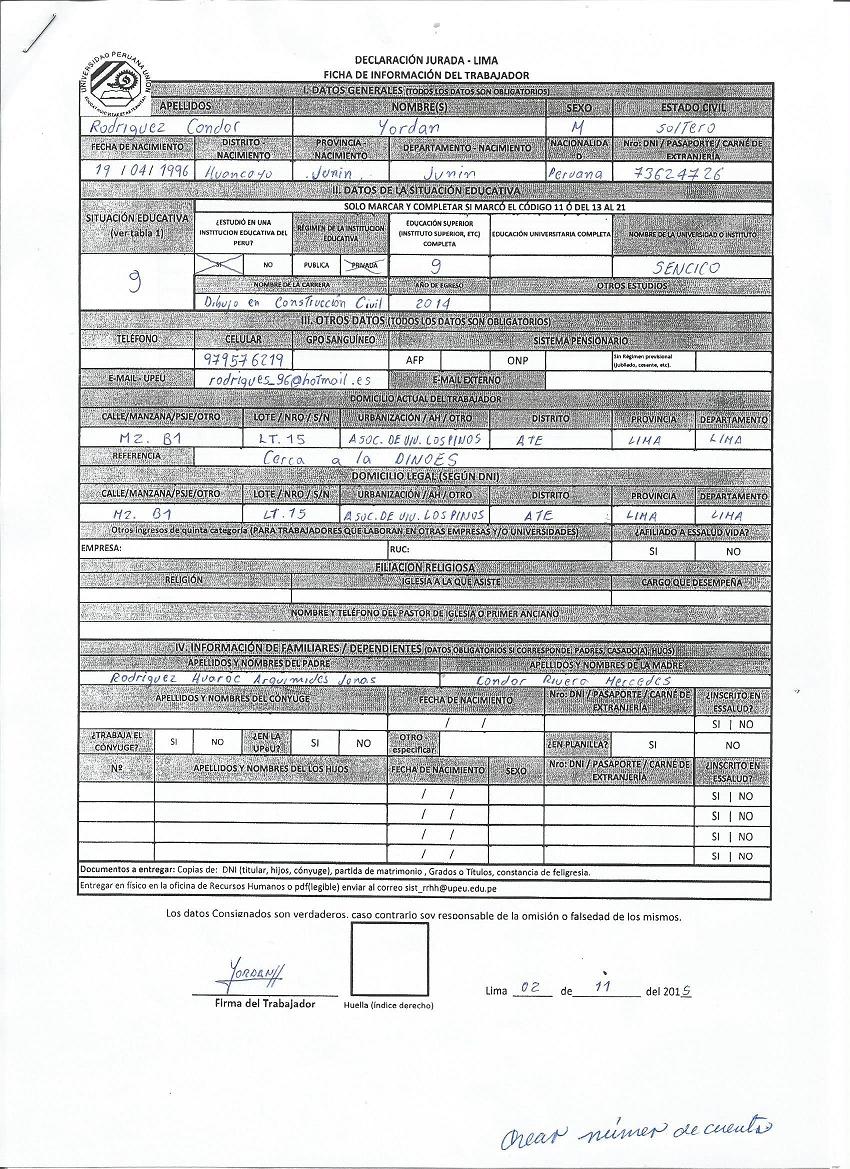 UNIVERSIDAD PERUANA UNION
DECLARACIÓN JURADA - LIMA
FICHA DE INFORMACIÓN DEL TRABAJADOR
I. DATOS GENERALES (TODOS LOS DATOS SON OBLIGATORIOS)
APELLIDOS NOMBRE(S) SEXO ESTADO CIVIL
Rodriguez Condor Yordan M SOLTERO
FECHA DE NACIMIENTO DISTRITO - NACIMIENTO PROVINCIA - NACIMIENTO DEPARTAMENTO - NACIMIENTO NACIONALIDAD Nro: DNI / PASAPORTE / CARNÉ DE EXTRANJERÍA
19 / 04 / 1996 Huancayo Junin Junin Peruana 73624726
II. DATOS DE LA SITUACIÓN EDUCATIVA
SOLO MARCAR Y COMPLETAR SI MARCÓ EL CÓDIGO 11 Ó DEL 13 AL 21
SITUACIÓN EDUCATIVA (ver tabla 1) ¿ESTUDIÓ EN UNA INSTITUCION EDUCATIVA DEL PERU? RÉGIMEN DE LA INSTITUCION EDUCATIVA EDUCACIÓN SUPERIOR (INSTITUTO SUPERIOR, ETC) COMPLETA EDUCACIÓN UNIVERSITARIA COMPLETA NOMBRE DE LA UNIVERSIDAD O INSTITUTO
9 SI NO PUBLICA PRIVADA 9 SENCICO
NOMBRE DE LA CARRERA AÑO DE EGRESO OTROS ESTUDIOS
Dibujo en Construccion Civil 2014
III. OTROS DATOS (TODOS LOS DATOS SON OBLIGATORIOS)
TELÉFONO CELULAR GPO SANGUÍNEO SISTEMA PENSIONARIO
979576219 AFP ONP Sin Régimen previsional (jubilado, cesante, etc).
E-MAIL - UPEU rodrigues_96@hotmail.es E-MAIL EXTERNO
DOMICILIO ACTUAL DEL TRABAJADOR
CALLE/MANZANA/PSJE/OTRO LOTE / NRO / S/N URBANIZACIÓN / AH / OTRO DISTRITO PROVINCIA DEPARTAMENTO
MZ. B1 LT. 15 ASOC. DE VIV. LOS PINOS ATE LIMA LIMA
REFERENCIA Cerca a la DINOES
DOMICILIO LEGAL (SEGÚN DNI)
CALLE/MANZANA/PSJE/OTRO LOTE / NRO / S/N URBANIZACIÓN / AH / OTRO DISTRITO PROVINCIA DEPARTAMENTO
MZ. B1 LT. 15 ASOC. DE VIV. LOS PINOS ATE LIMA LIMA
Otros ingresos de quinta categoría (PARA TRABAJADORES QUE LABORAN EN OTRAS EMPRESAS Y/O UNIVERSIDADES) ¿AFILIADO A ESSALUD VIDA?
EMPRESA: RUC: SI NO
FILIACIÓN RELIGIOSA
RELIGIÓN IGLESIA A LA QUE ASISTE CARGO QUE DESEMPEÑA
NOMBRE Y TELÉFONO DEL PASTOR DE IGLESIA O PRIMER ANCIANO
IV. INFORMACIÓN DE FAMILIARES / DEPENDIENTES (DATOS OBLIGATORIOS SI CORRESPONDE: PADRES, CASADO(A), HIJOS)
APELLIDOS Y NOMBRES DEL PADRE APELLIDOS Y NOMBRES DE LA MADRE
Rodriguez Huaroc Arquimides Jonas Condor Rivera Mercedes
APELLIDOS Y NOMBRES DEL CÓNYUGE FECHA DE NACIMIENTO Nro: DNI / PASAPORTE / CARNÉ DE EXTRANJERÍA ¿INSCRITO EN ESSALUD?
/ / SI | NO
¿TRABAJA EL CÓNYUGE? SI NO ¿EN LA UPeU? SI NO OTRO especificar ¿EN PLANILLA? SI NO
Nº APELLIDOS Y NOMBRES DEL LOS HIJOS FECHA DE NACIMIENTO SEXO Nro: DNI / PASAPORTE / CARNÉ DE EXTRANJERÍA ¿INSCRITO EN ESSALUD?
/ / SI | NO
/ / SI | NO
/ / SI | NO
/ / SI | NO
Documentos a entregar: Copias de: DNI (titular, hijos, cónyuge), partida de matrimonio , Grados o Títulos, constancia de feligresia.
Entregar en físico en la oficina de Recursos Humanos o pdf(legible) enviar al correo sist_rrhh@upeu.edu.pe
Los datos Consignados son verdaderos, caso contrario soy responsable de la omisión o falsedad de los mismos.
YORDAN
Firma del Trabajador
Huella (índice derecho)
Lima 02 de 11 del 2015
Crear númer de cuenta